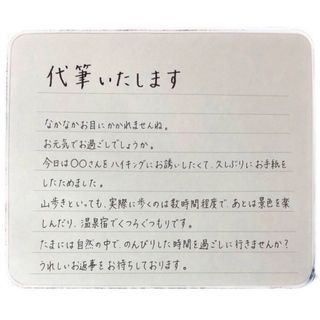 代筆いたします
なかなかお目にかかれませんね。
お元気でお過ごしでしょうか。
今日は〇〇さんをハイキングにお誘いしたくて、久しぶりにお手紙を
したためました。
山歩きといっても、実際に歩くのは数時間程度で、あとは景色を楽
しんだり、温泉宿でくつろぐつもりです。
たまには自然の中で、のんびりした時間を過ごしに行きませんか？
うれしいお返事をお待ちしております。